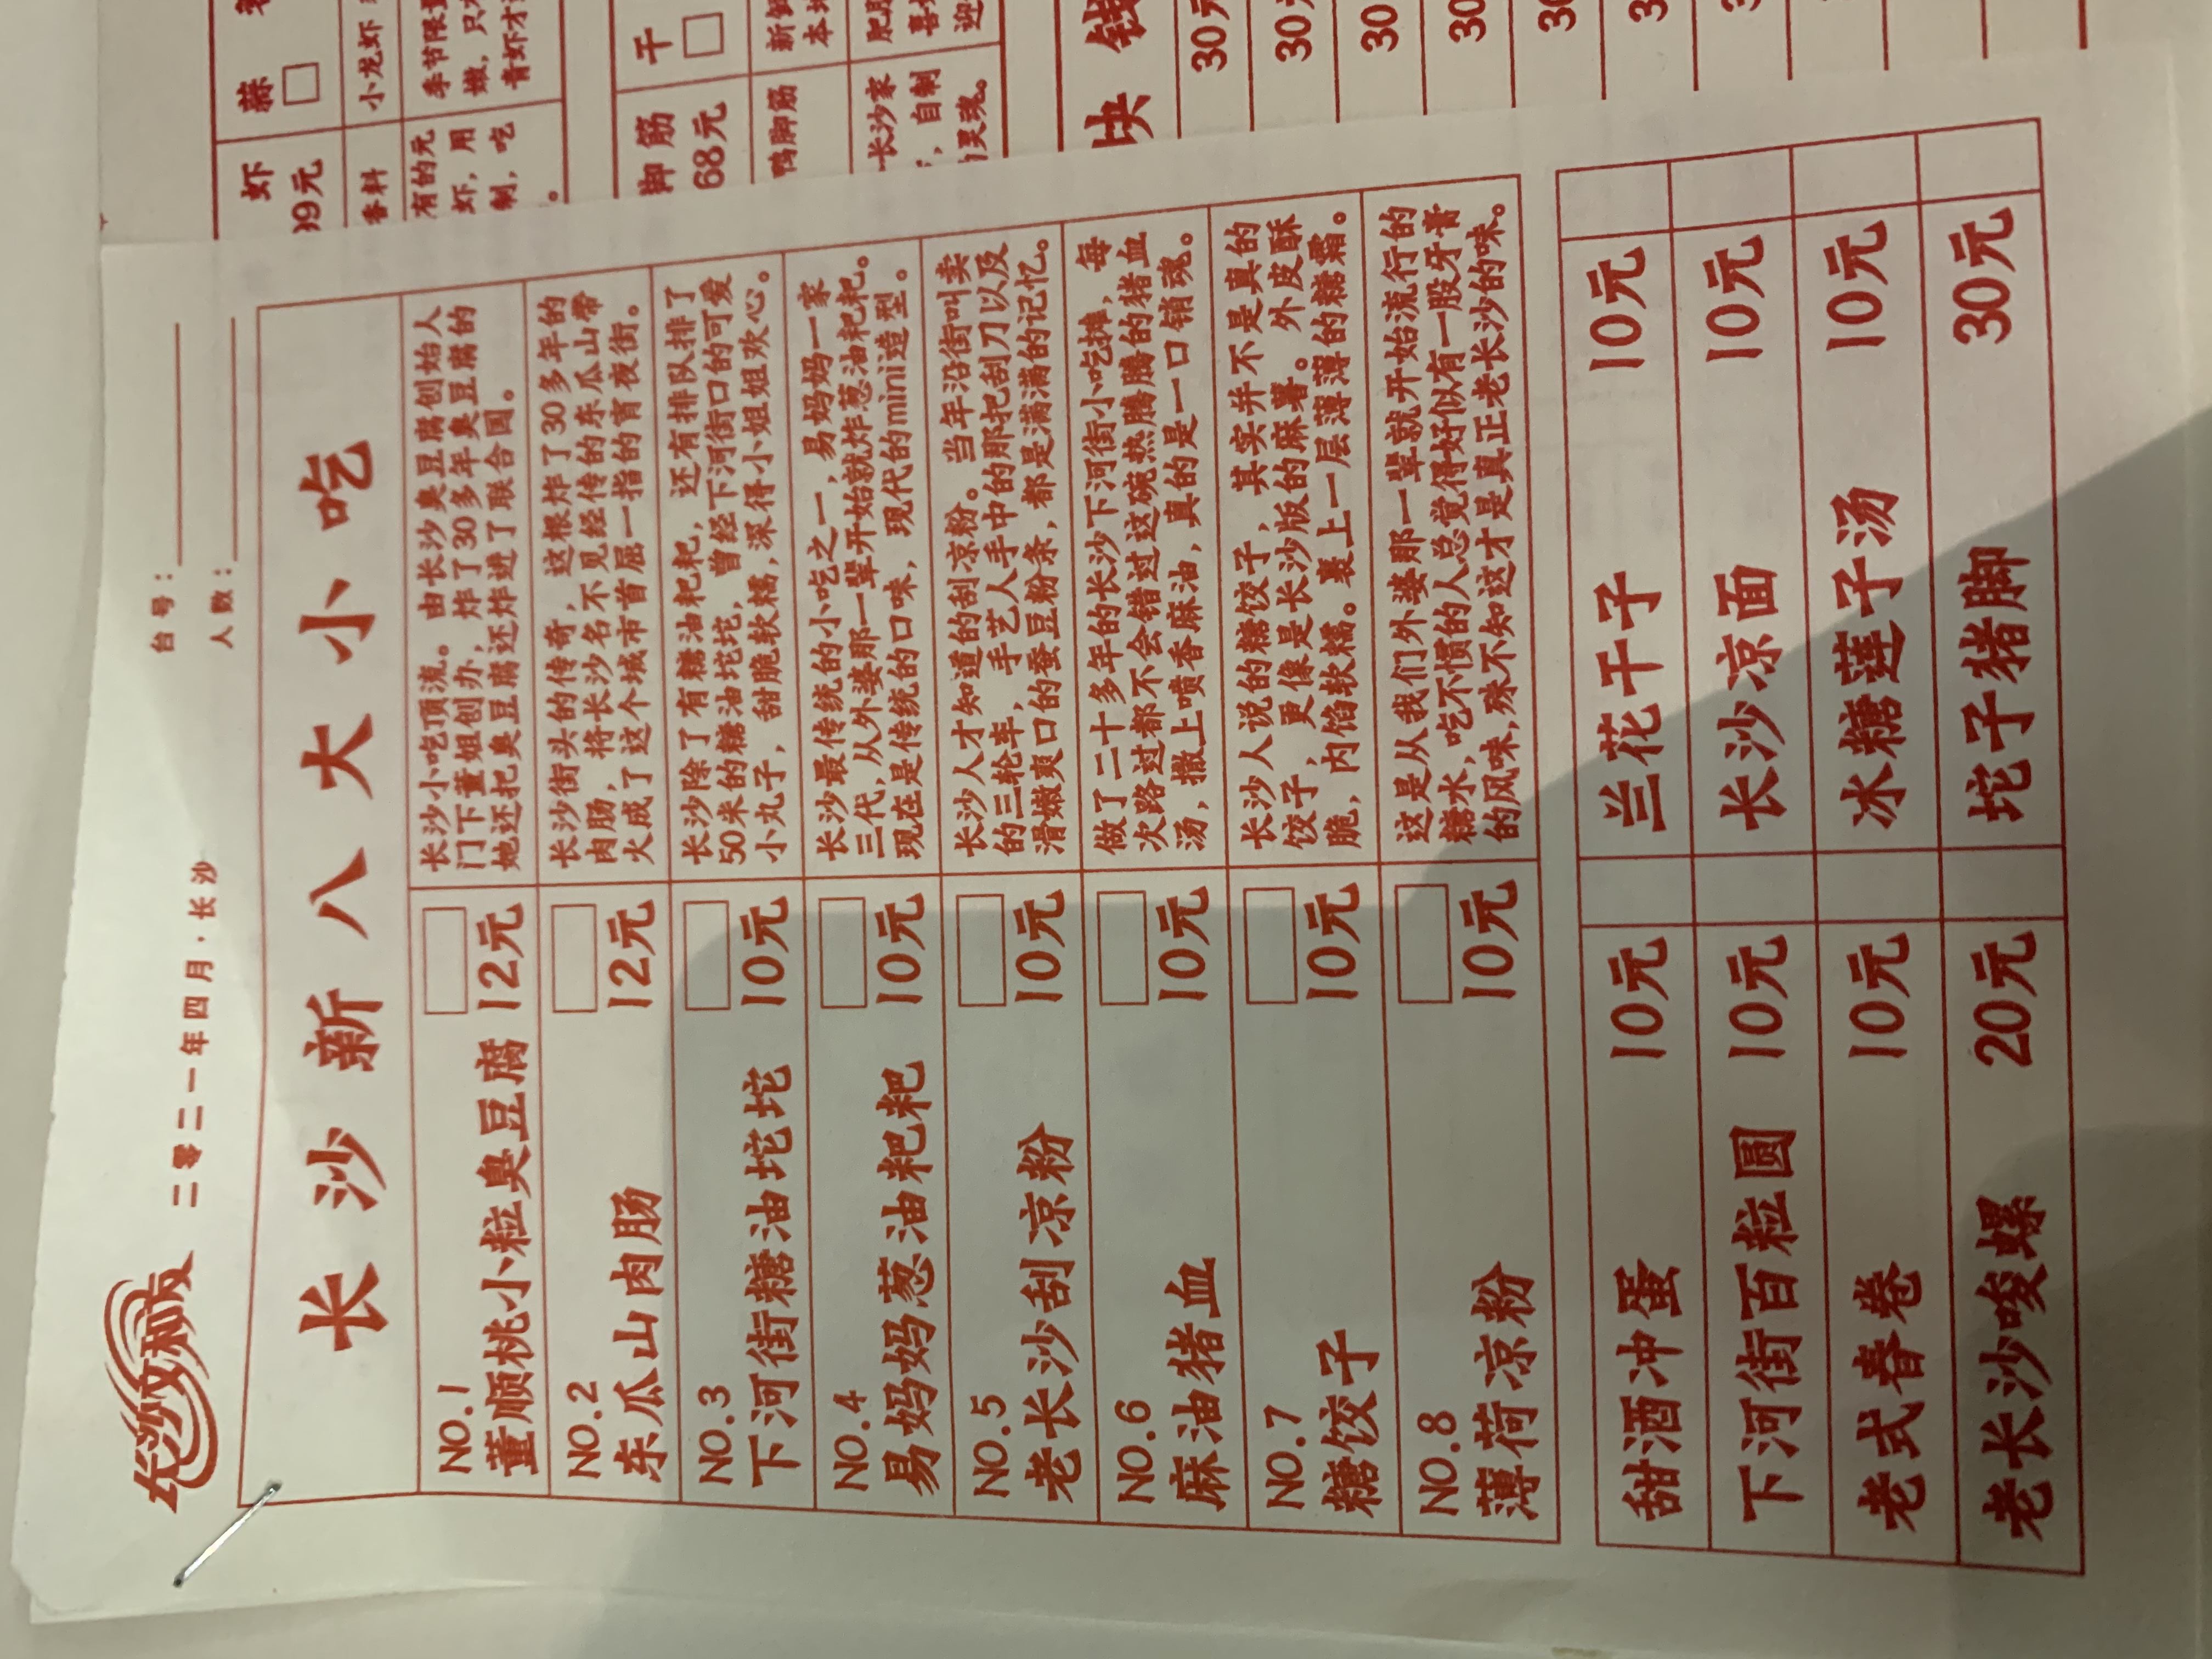 长沙文和友
二零二一年四月·长沙
台号：
人数：
长沙新八大小吃
NO.1
董顺桃小粒臭豆腐 12元
长沙小吃顶流。由长沙臭豆腐创始人
门下董姐创办，炸了30多年臭豆腐的
她还把臭豆腐还炸进了联合国。
NO.2
东瓜山肉肠 12元
长沙街头的传奇，这根炸了30多年的
肉肠，将长沙名不见经传的东瓜山带
火成了这个城市首屈一指的宵夜街。
NO.3
下河街糖油坨坨 10元
长沙除了有糖油粑粑，还有排队排了
50米的糖油坨坨，曾经下河街口的可爱
小丸子，甜脆软糯，深得小姐姐欢心。
NO.4
易妈妈葱油粑粑 10元
长沙最传统的小吃之一，易妈妈一家
三代，从外婆那一辈开始就炸葱油粑粑。
现在是传统的口味，现代的mini造型。
NO.5
老长沙刮凉粉 10元
长沙人才知道的刮凉粉。当年沿街叫卖
的三轮车，手艺人手中的那把刮刀以及
滑嫩爽口的蚕豆粉条，都是满满的记忆。
NO.6
麻油猪血 10元
做了二十多年的长沙下河街小吃摊，每
次路过都不会错过这碗热腾腾的猪血
汤，撒上喷香麻油，真的是一口销魂。
NO.7
糖饺子 10元
长沙人说的糖饺子，其实并不是真的
饺子，更像是长沙版的麻薯。外皮酥
脆，内馅软糯。裹上一层薄薄的糖霜。
NO.8
薄荷凉粉 10元
这是从我们外婆那一辈就开始流行的
糖水，吃不惯的人总觉得好似有一股牙膏
的风味，殊不知这才是真正老长沙的味。
甜酒冲蛋 10元 兰花干子 10元
下河街百粒圆 10元 长沙凉面 10元
老式春卷 10元 冰糖莲子汤 10元
老长沙唆螺 20元 坨子猪脚 30元
虾 蒜
99元
香料 小龙虾
有的元 季节限
虾，用 嫩，只
制，吃 青虾才
。
脚筋 干
68元
鸭脚筋 新
本
长沙家 肥
，自制 喜
灵魂。 迎
块钱
30元
30
30
30